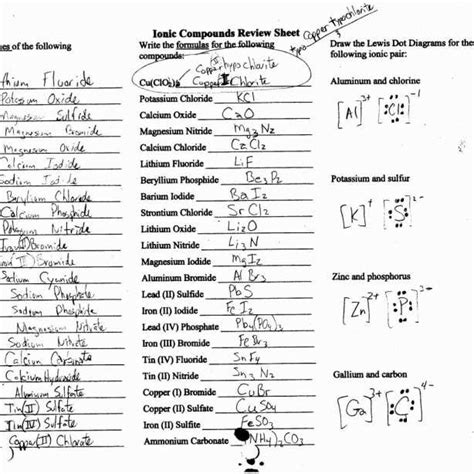 Ionic Compounds Review Sheet
Copper Hypochlorite
typo
es of the following
Write the formulas for the following
compounds:
Draw the Lewis Dot Diagrams for the
following ionic pair:
is
Copper hypochlorite
Cu(ClO₂)₂ Copper Chlorite
thium Fluoride
Potassium Oxide
Magnesium Sulfide
Magnesium Bromide
Magnesium Oxide
Calcium Iodide
Sodium Iodide
Berylium Chloride
Calcium Phosphide
Potassium Nitride
Iron (II) Bromide
(II) Bromide
Sodium Cyanide
Sodium Phosphate
Sodium Phosphite
Magnesium Nitrate
Sodium Nitrate
Calcium Carbonate
Calcium Hydroxide
Aluminum Sulfate
Tin (II) Sulfate
Copper (II) Chlorate
Potassium Chloride KCl
Calcium Oxide CaO
Magnesium Nitride Mg₃N₂
Calcium Chloride CaCl₂
Lithium Fluoride LiF
Beryllium Phosphide Be₃P₂
Barium Iodide BaI₂
Strontium Chloride SrCl₂
Lithium Oxide Li₂O
Lithium Nitride Li₃N
Magnesium Iodide MgI₂
Aluminum Bromide AlBr₃
Lead (II) Sulfide PbS
Iron (II) Iodide FeI₂
Lead (IV) Phosphate Pb₃(PO₄)₄
Tin (IV) Fluoride SnF₄
Tin (II) Nitride Sn₃N₂
Copper (I) Bromide CuBr
Copper (II) Sulfate CuSO₄
Iron (II) Sulfite FeSO₃
Ammonium Carbonate (NH₄)₂CO₃
Aluminum and chlorine
[Al]³⁺ [Cl]¹⁻
Potassium and sulfur
[K]⁺ [S]²⁻
Zinc and phosphorus
[Zn]²⁺ [P]³⁻
Gallium and carbon
[Ga]³⁺ [C]⁴⁻